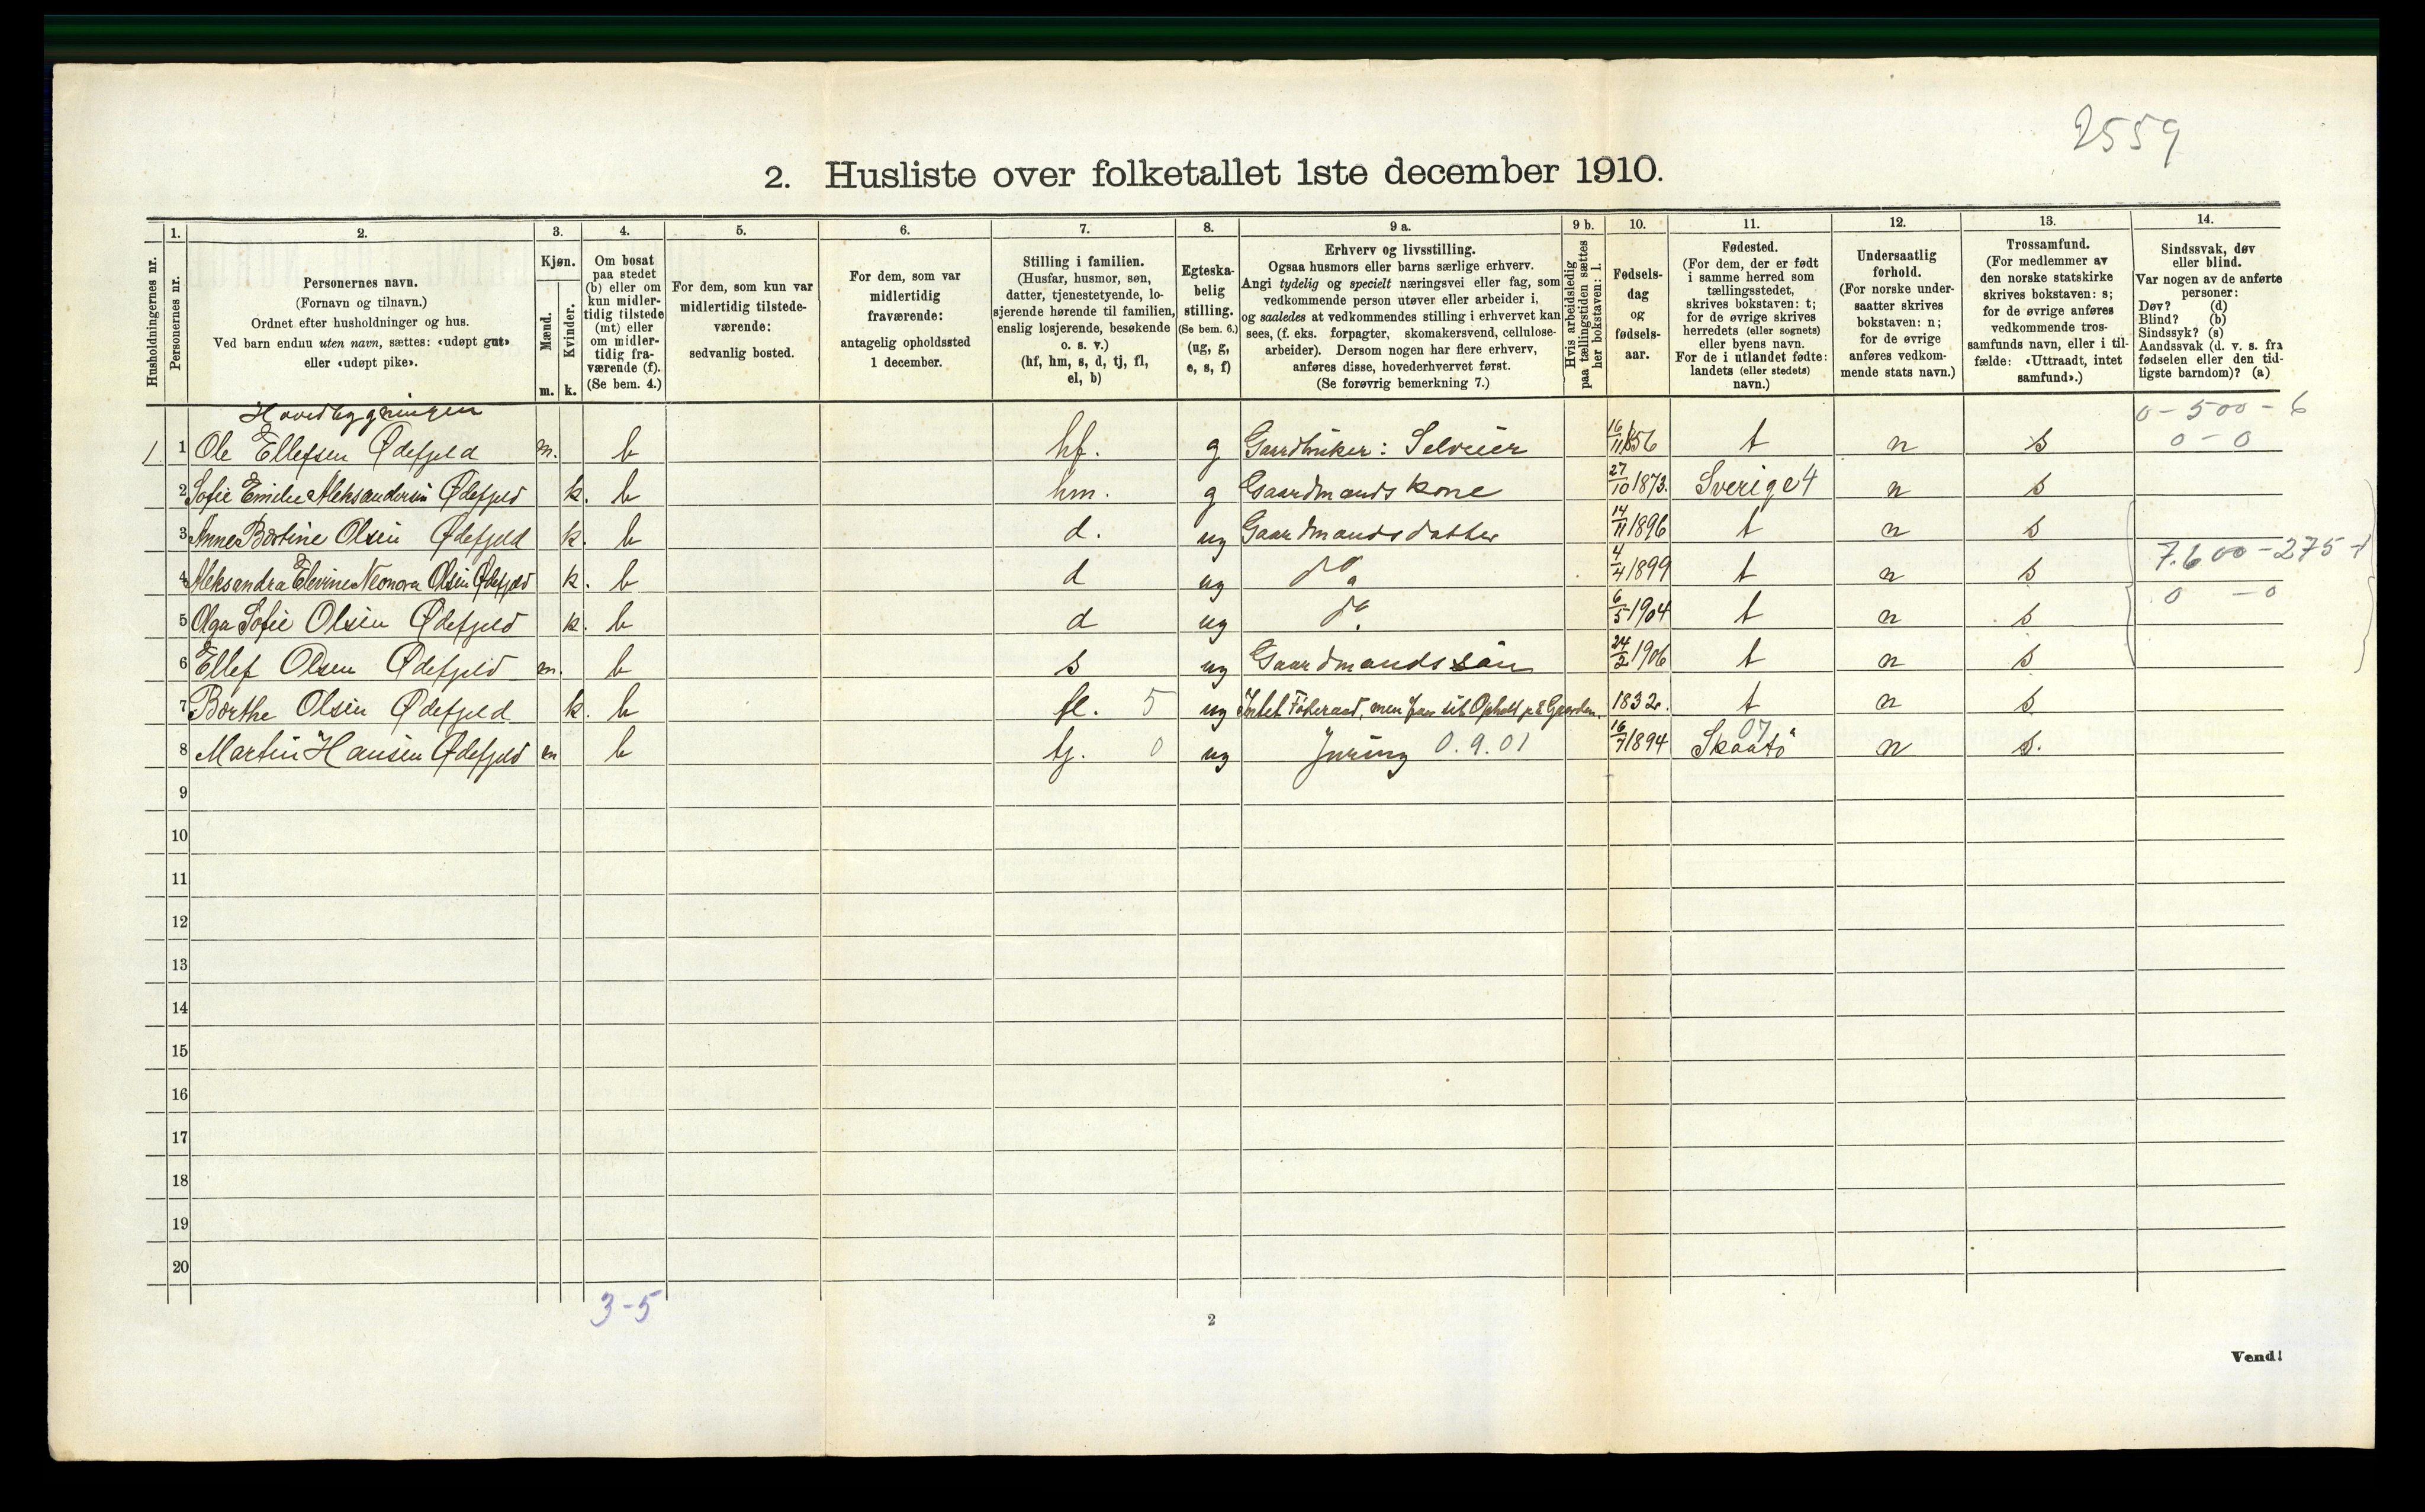 2559
2. Husliste over folketallet 1ste december 1910.
Husholdningernes nr.
1.
Personernes nr.
2.
Personernes navn.
(Fornavn og tilnavn.)
Ordnet efter husholdninger og hus.
Ved barn endnu uten navn, sættes: «udøpt gut»
eller «udøpt pike».
3.
Kjøn.
Mænd.
m.
Kvinder.
k.
4.
Om bosat
paa stedet
(b) eller om
kun midler-
tidig tilstede
(mt) eller
om midler-
tidig fra-
værende (f).
(Se bem. 4.)
5.
For dem, som kun var
midlertidig tilstede-
værende:
sedvanlig bosted.
6.
For dem, som var
midlertidig
fraværende:
antagelig opholdssted
1 december.
7.
Stilling i familien.
(Husfar, husmor, søn,
datter, tjenestetyende, lo-
sjerende hørende til familien,
enslig losjerende, besøkende
o. s. v.)
(hf, hm, s, d, tj, fl,
el, b)
8.
Egteska-
belig
stilling.
(Se bem. 6.)
(ug, g,
e, s, f)
9 a.
Erhverv og livsstilling.
Ogsaa husmors eller barns særlige erhverv.
Angi tydelig og specielt næringsvei eller fag, som
vedkommende person utøver eller arbeider i,
og saaledes at vedkommendes stilling i erhvervet kan
sees, (f. eks. forpagter, skomakersvend, cellulose-
arbeider). Dersom nogen har flere erhverv,
anføres disse, hovederhvervet først.
(Se forøvrig bemerkning 7.)
9 b.
Hvis arbeidsledig
paa tællingstiden sættes
her bokstaven: l.
10.
Fødsels-
dag
og
fødsels-
aar.
11.
Fødested.
(For dem, der er født
i samme herred som
tællingsstedet,
skrives bokstaven: t;
for de øvrige skrives
herredets (eller sognets)
eller byens navn.
For de i utlandet fødte:
landets (eller stedets)
navn.)
12.
Undersaatlig
forhold.
(For norske under-
saatter skrives
bokstaven: n;
for de øvrige
anføres vedkom-
mende stats navn.)
13.
Trossamfund.
(For medlemmer av
den norske statskirke
skrives bokstaven: s;
for de øvrige anføres
vedkommende tros-
samfunds navn, eller i til-
fælde: «Uttraadt, intet
samfund».)
14.
Sindssvak, døv
eller blind.
Var nogen av de anførte
personer:
Døv? (d)
Blind? (b)
Sindssyk? (s)
Aandssvak (d. v. s. fra
fødselen eller den tid-
ligste barndom)? (a)
Hovedbygningen
0 - 500 - 6
1 1 Ole Ellefsen Ødefjeld m. b hf. g Gaardbruker: Selveier 16/11 1856 t n s 0 - 0
2 Sofie Emilie Aleksandersen Ødefjeld k. b hm. g Gaardmandskone 27/10 1873. Sverige 4 n s
3 Anne Bertine Olsen Ødefjeld k. b d. ug Gaardmandsdatter 14/11 1896 t n s
4 Aleksandra Elevine Neonora Olsen Ødefjeld k. b d ug do 4/4 1899 t n s 7.600 - 275 -
5 Olga Sofie Olsen Ødefjeld k. b d ug do 6/5 1904 t n s 0 - 0
6 Ellef Olsen Ødefjeld m. b s ug Gaardmandssøn 24/2 1906 t n s
7 Börthe Olsen Ødefjeld k. b fl. 5 ug Intet Föderaad, men har sit Ophold på Gaarden. 1832. t n s
8 Martin Hansen Ødefjeld m b tj. 0 ug 0.9.01 16/7 1894 07 Skaatö n s.
9
10
11
12
13
14
15
16
17
18
19
20
3-5
2
Vend!